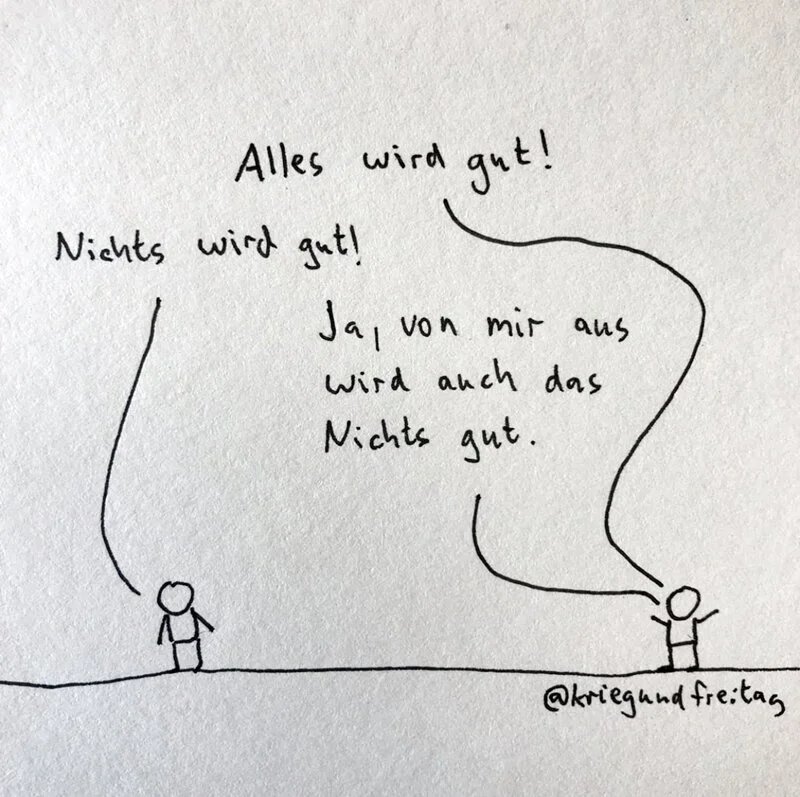 Alles wird gut!
Nichts wird gut!
Ja, von mir aus
wird auch das
Nichts gut.
@kriegundfreitag